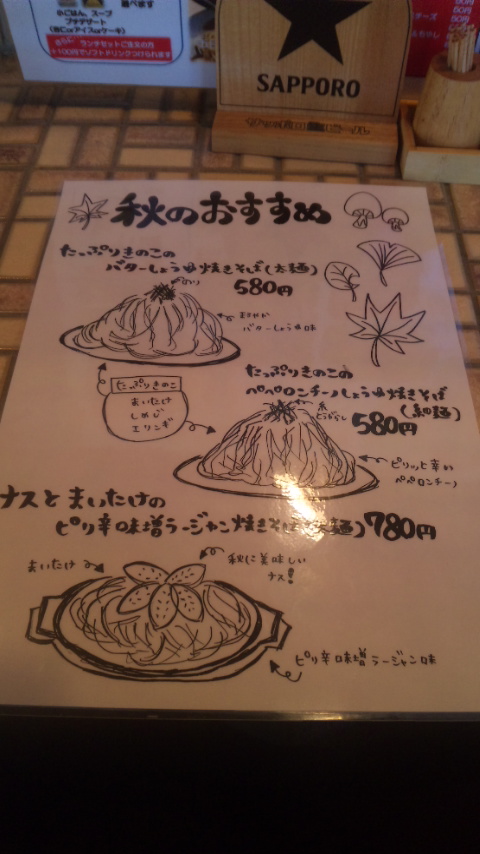 選べます
小ごはん、スープ
プチデザート
ランチセットご注文の方
+100円でソフトドリンクつけられます
SAPPORO
秋のおすすめ
たっぷりきのこの
バターしょうゆ焼きそば(太麺)
580円
のり
まろやか
バターしょうゆ味
たっぷりきのこ
まいたけ
しめじ
エリンギ
たっぷりきのこの
ペペロンチーノしょうゆ焼きそば
(細麺)
580円
糸
とうがらし
ピリッと辛い
ペペロンチーノ
ナスとまいたけの
ピリ辛味増ラージャン焼きそば 麺)780円
まいたけ
秋に美味しい
ナス!
ピリ辛味増ラージャン味